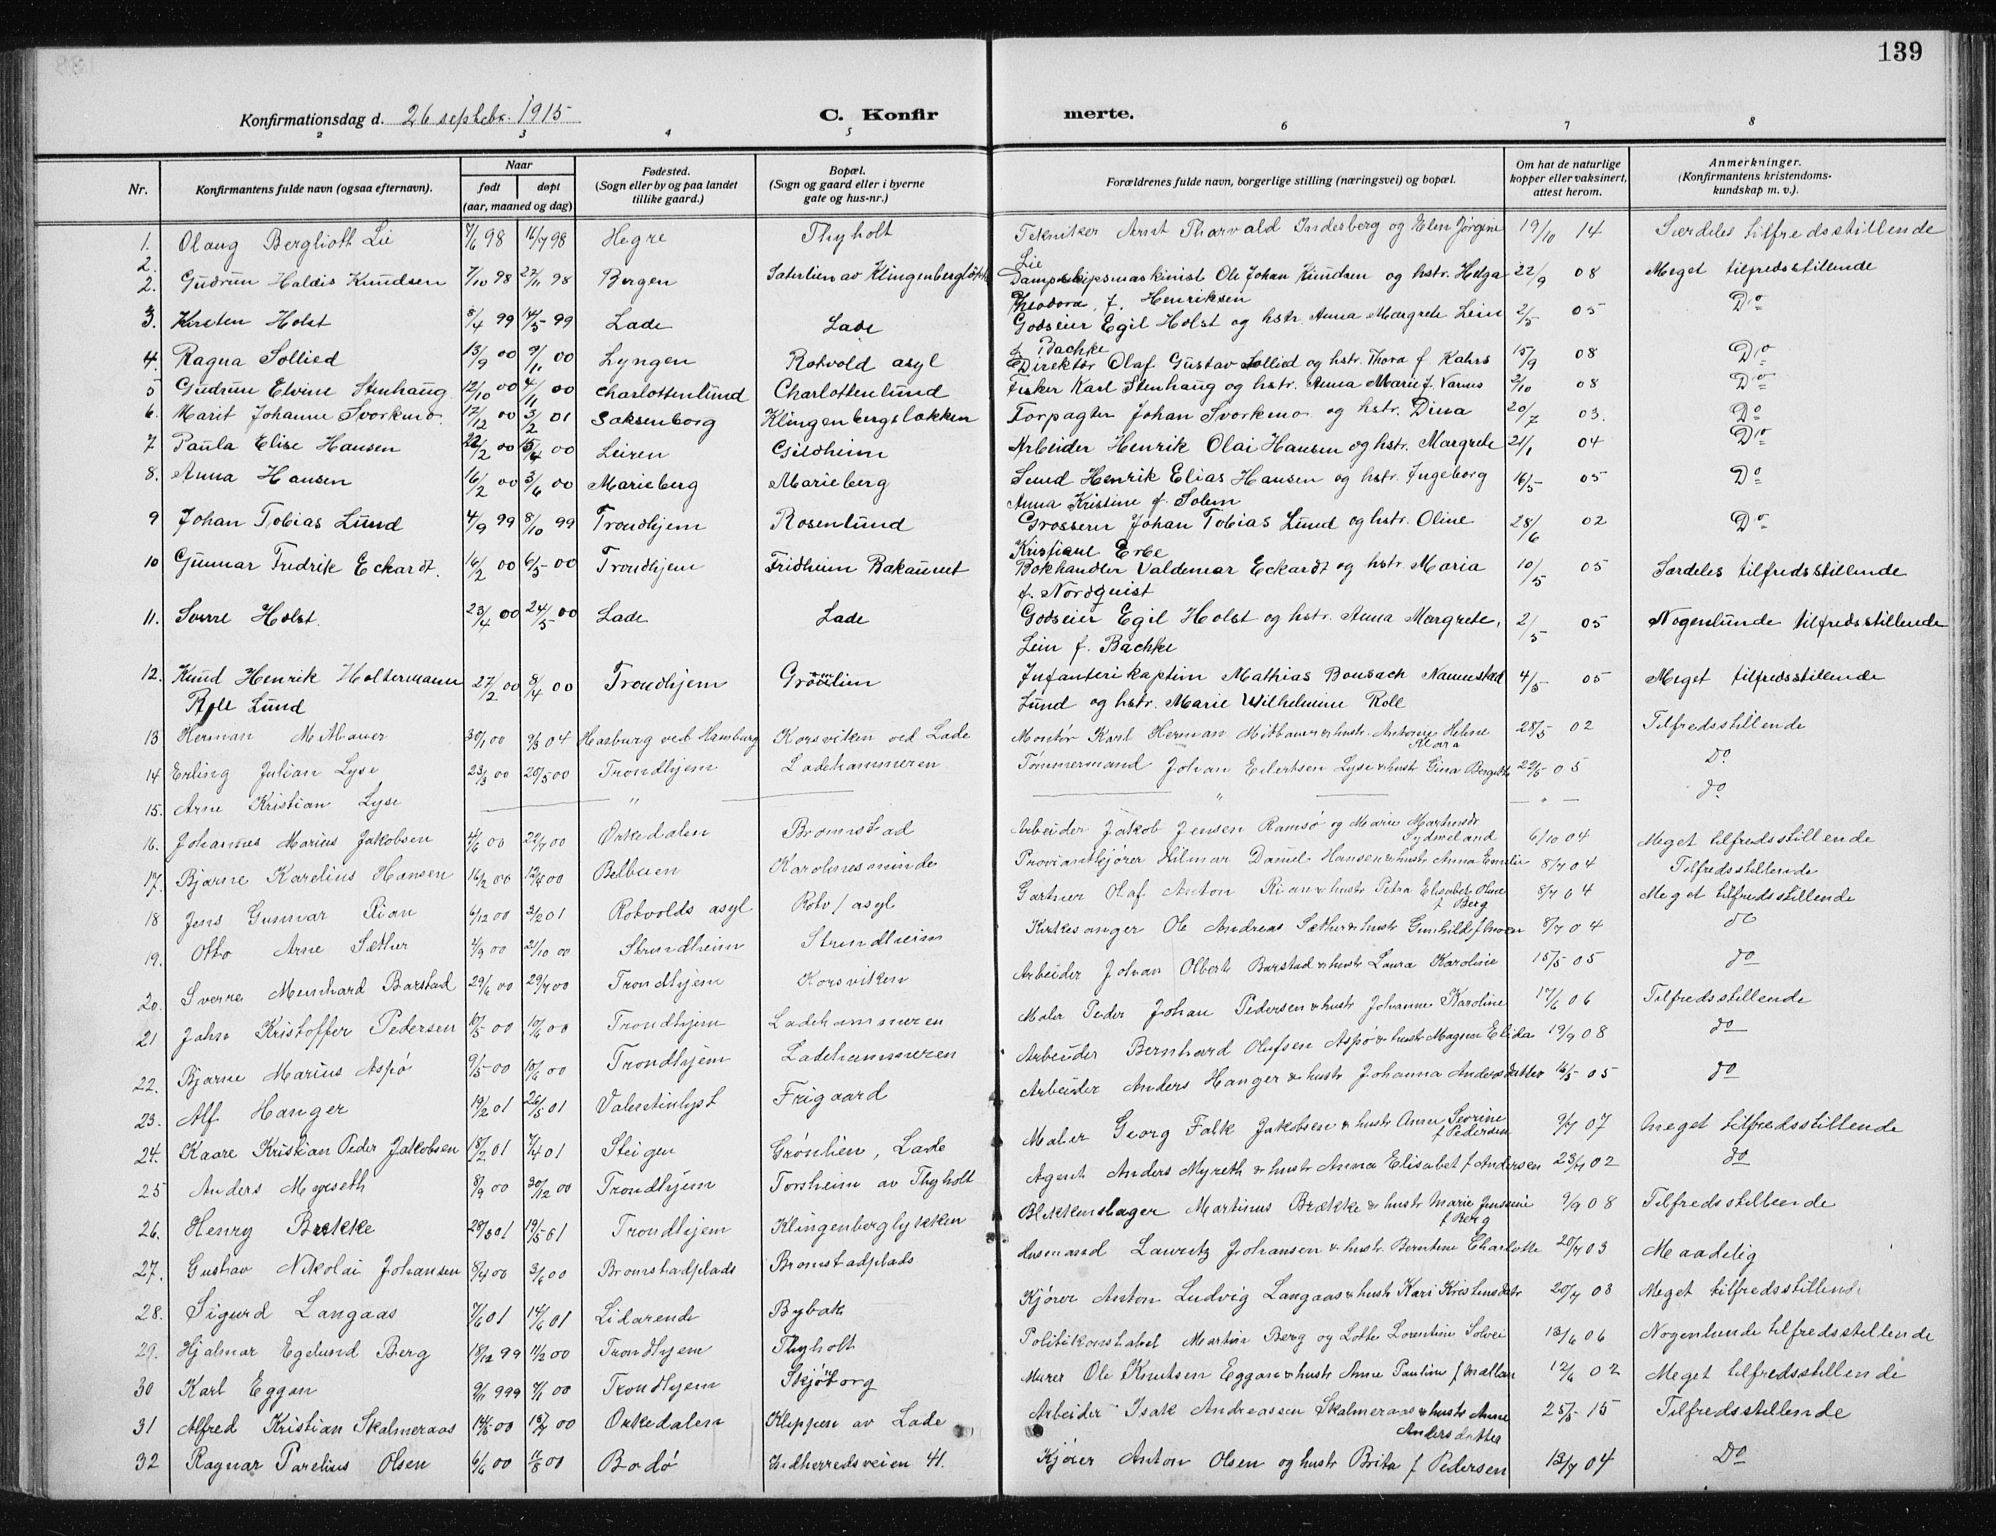 139
Konfirmationsdag d. 26 septbr. 1915
C. Konfirmerte.
2 3 4 5 6 7 8
Nr. | Konfirmantens fulde navn (ogsaa efternavn). | Naar født | døpt (aar, maaned og dag) | Fødested. (Sogn eller by og paa landet tillike gaard.) | Bopæl. (Sogn og gaard eller i byerne gate og hus-nr.) | Forældrenes fulde navn, borgerlige stilling (næringsvei) og bopæl. | Om hat de naturlige kopper eller vaksinert, attest herom. | Anmerkninger. (Konfirmantens kristendoms-kundskap m. v.).
1. Olaug Bergliott Lie 7/6 98 16/7 98 Hegre Thyholt Tekniker Arnt Tharvald Indesberg og Elen Jørgine 19/10 14 Særdeles tilfredsstillende
2. Lie
2. Gudrun Haldis Knudsen 7/10 98 27/11 98 Bergen Sæterlien av Klingenbergløkk Dampskipsmaskinist Ole Johan Knudsen og hstr. Helga 22/9 08 Meget tilfredsstillende
Theodora, f. Henriksen
3. Kirsten Holst 8/4 99 14/5 99 Lade Lade Godseier Egil Holst og hstr. Anna Margrete Lein 2/5 05 Do
f. Bachke
4. Ragna Sollied 13/9 00 9/11 00 Lyngen Rotvold asyl Direktør Olaf Gustav Sollied og hstr. Thora f. Kahrs 15/9 08 Do
5 Gudrun Elvine Stenhaug 12/10 00 4/11 00 Charlottenlund Charlottenlund Fisker Karl Stenhaug og hstr. Anna Marie f. Varnes 2/10 08 Do
6. Marit Johanne Svorkmo. 12/12 00 3/2 01 Saksenborg Klingenbergsløkken Forpagter Johan Svorkmo og hstr. Dina 20/7 03. Do
7. Paula Elise Hansen 22/2 00 15/4 00 Leiren Gildheim Arbeider Henrik Olai Hansen og hstr. Margrete 21/1 04 Do
8. Anna Hansen 16/2 00 3/6 00 Marieberg Marieberg Smed Henrik Elias Hansen og hstr. Ingeborg 16/5 05 Do
Anna Kristine f. Solem
9 Johan Tobias Lund 4/9 99 8/10 99 Trondhjem Rosenlund Grosserer Johan Tobias Lund og hstr. Oline 28/6 02 Do
Kristiane Erbe
10 Gunnar Fredrik Eckardt. 16/2 00 6/5 00 Trondhjem Fridheim Bakaunet Bokhandler Valdemar Eckardt og hstr. Maria 10/5 05 Særdeles tilfredsstillende
f. Nordquist
11. Sverre Holst. 23/4 00 24/5 00 Lade Lade Godseier Egil Holst og hstr. Anna Margrete, 2/5 05 Nogenlunde tilfredsstillende
Lein f. Bachke
12. Knud Henrik Holtermann 27/2 00 8/4 00 Trondhjem Grønlien Infanterikaptein Mathias Bonsach Nannestad 4/5 05 Meget tilfredsstillende
Rolf Lund Lund og hstr. Marie Wilhelmine Roll
13 Herman Mitbauer 30/1 00 9/3 04 Harburg ved Hamburg Korsviken ved Lade Montør Karl Herman Mitbauer & hustr. Antonie Helene 28/5 02 Tilfredsstillende
Klara
14 Erling Julian Lyse 23/3 00 20/5 00 Trondhjem Ladehammeren Tømmermand Johan Eilertsen Lyse & hustr Gina Bergitte 22/5 05 Do
15. Arne Kristian Lyse — " — " — " — do
16. Johannes Marius Jakobsen 4/6 00 22/7 00 Orkedalen Bromstad Arbeider Jakob Jensen Ramsø og Marie Martinsdr 6/10 04 Meget tilfredsstillende
Sydmeland
17. Bjarne Karelius Hansen 16/2 00 12/4 00 Belbuen Karolinesminde Proviantkjører Hilmar Daniel Hansen & hustr Anna Emilie 8/7 04 Tilfredsstillende
18 Jens Gunnar Rian 6/12 00 3/2 01 Rotvolds asyl Rotv / asyl Gartner Olaf Anton Rian & hustr Petra Elisabet Oline 8/7 04 Meget tilfredsstillende
f Berg
19. Otto Arne Sæther 4/9 00 21/10 00 Strindheim Strindheim Kirkesanger Ole Andreas Sæther & hustr Gunhild f Moen 8/7 04 do
20. Sverre Meinhard Barstad 29/6 00 29/7 00 Trondhjem Korsviken Arbeider Johan Olbert Barstad & hustr Laura Karoline 15/5 05 do
21 Jahn Kristoffer Pedersen 17/5 00 10/6 00 Trondhjem Ladehammeren Maler Peder Johan Pedersen & hustr Johanne Karoline 17/6 06 Tilfredsstillende
22. Bjarne Marius Aspø 9/5 00 10/6 00 Trondhjem Ladehammeren Arbeider Bernhard Olufsen Aspø & hustr Magna Elida 19/9 08 do
23. Alf Hanger 19/2 01 26/5 01 Valentinlyst Frigaard Arbeider Anders Hanger & hustr Johanna Andersdatter 16/5 05 do
24. Kaare Kristian Peder Jakobsen 18/2 01 7/4 01 Steigen Grønlien, Lade Maler Georg Falk Jakobsen & hustr Anne Sevrine 9/7 07 Meget tilfredsstillende
f Pedersen
25 Anders Myreth 8/9 00 30/12 00 Trondhjem Torsheim av Thyholt Agent Anders Myreth & hustr Anna Elisabet f Andersen 23/7 02 do
26. Henry Brekke 28/3 01 19/5 01 Trondhjem Klingenberglykken Blikkenslager Martinus Brække & hustr Marie Jensine 9/9 08 Tilfredsstillende
f Berg
27. Gustav Nikolai Johansen 8/4 00 3/6 00 Bromstadplads Bromstadplads Husmand Lauritz Johansen & hustr. Berntine Charlotte 20/7 03 Maadelig
28. Sigurd Langaas 7/6 01 14/6 01 Lidarende Bybak Kjører Anton Ludvig Langaas & hustr Kari Kristensdtr 20/7 03 Meget tilfredsstillende
29. Hjalmar Egelund Berg 18/12 99 11/2 00 Trondhjem Thyholt Politikonstabel Martin Berg og Lotte Lorentine Solvei 13/6 06 Nogenlunde tilfredsstillende
30 Karl Eggan 9/11 999 7/1 00 Trondhjem Skjøtborg Murer Ole Knutsen Eggan & hustr Anne Pauline f Mællan 12/6 02 Meget tilfredsstillende
31 Alfred Kristian Skalmeraas 14/5 00 15/7 00 Orkedalen Kleppen av Lade Arbeider Isak Andreassen Skalmeraas & hustr Anne 25/5 15 Tilfredsstillende
Andersdatter
32 Ragnar Parelius Olsen 6/6 00 11/8 00 Bodø Indherredsveien 41. Kjører Anton Olsen og hustr Brita f Pedersen 13/7 04 Do